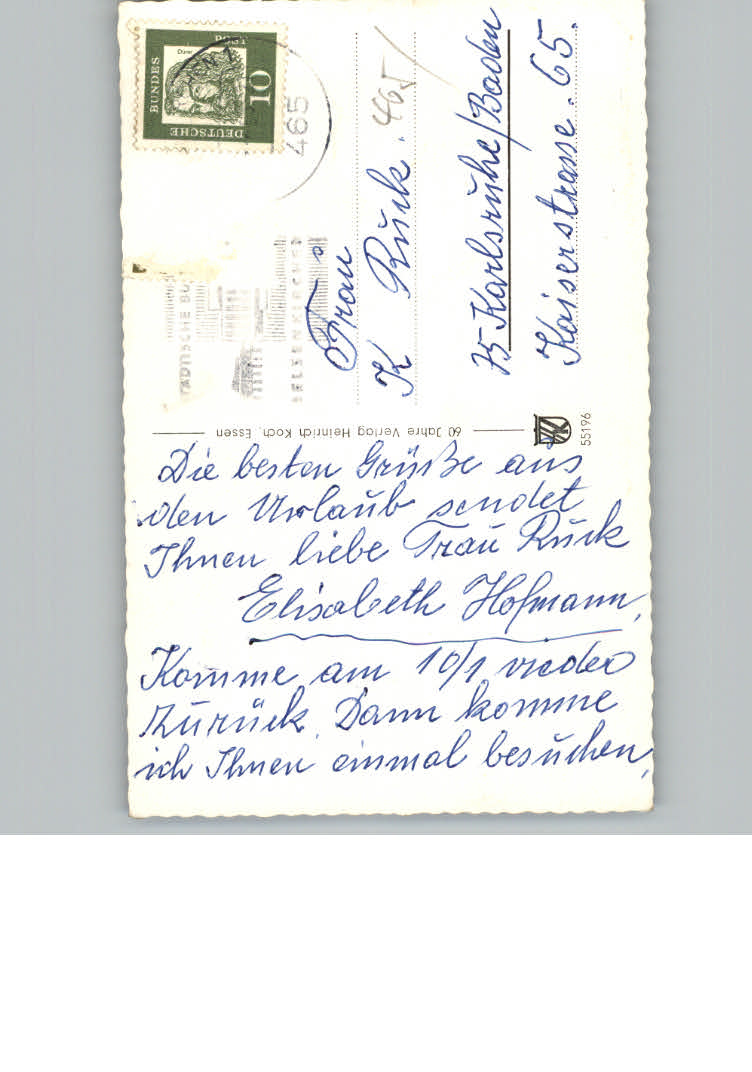 Die besten Grüße aus
den Urlaub sendet
Ihnen liebe Frau Ruck
Elisabeth Hofmann,
Komme am 10/1 wieder
zurück. Dann komme
ich Ihnen einmal besuchen,
60 Jahre Verlag Heinrich Koch, Essen
55196
Frau
K Ruck. 465/
75 Karlsruhe/Baden
Kaiserstrasse. 65.
DEUTSCHE
BUNDES
POST
10
Dürer
465
GELSENKIRCHEN